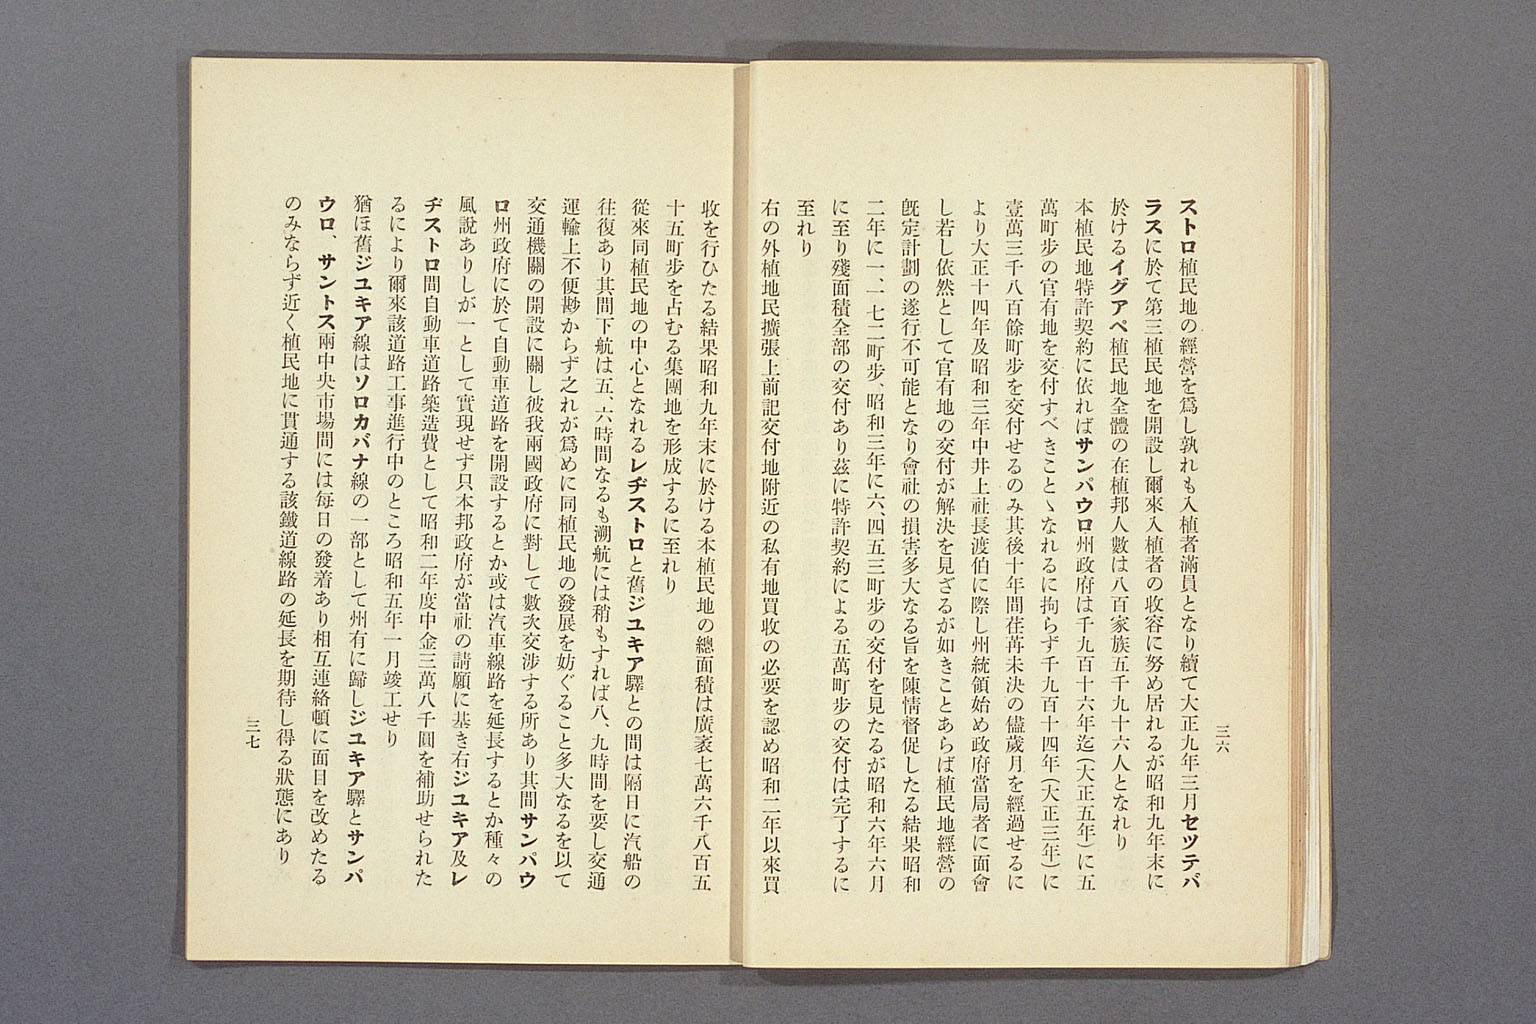 三六
ストロ植民地の經營を爲し孰れも入植者滿員となり續て大正九年三月セツテバ
ラスに於て第三植民地を開設し爾來入植者の收容に努め居れるが昭和九年末に
於けるイグアペ植民地全體の在植邦人數は八百家族五千九十六人となれり
本植民地特許契約に依ればサンパウロ州政府は千九百十六年迄(大正五年)に五
萬町步の官有地を交付すべきことゝなれるに拘らず千九百十四年(大正三年)に
壹萬三千八百餘町步を交付せるのみ其後十年間荏苒未決の儘歲月を經過せるに
より大正十四年及昭和三年中井上社長渡伯に際し州統領始め政府當局者に面會
し若し依然として官有地の交付が解決を見ざるが如きことあらば植民地經營の
旣定計劃の遂行不可能となり會社の損害多大なる旨を陳情督促したる結果昭和
二年に一一、七二町步、昭和三年に六、四五三町步の交付を見たるが昭和六年六月
に至り殘面積全部の交付あり茲に特許契約による五萬町步の交付は完了するに
至れり
右の外植地民擴張上前記交付地附近の私有地買收の必要を認め昭和二年以來買
收を行ひたる結果昭和九年末に於ける本植民地の總面積は廣袤七萬六千八百五
十五町步を占むる集團地を形成するに至れり
從來同植民地の中心となれるレヂストロと舊ジユキア驛との間は隔日に汽船の
往復あり其間下航は五、六時間なるも溯航には稍もすれば八、九時間を要し交通
運輸上不便尠からず之れが爲めに同植民地の發展を妨ぐること多大なるを以て
交通機關の開設に關し彼我兩國政府に對して數次交涉する所あり其間サンパウ
ロ州政府に於て自動車道路を開設するとか或は汽車線路を延長するとか種々の
風說ありしが一として實現せず只本邦政府が當社の請願に基き右ジユキア及レ
ヂストロ間自動車道路築造費として昭和二年度中金三萬八千圓を補助せられた
るにより爾來該道路工事進行中のところ昭和五年一月竣工せり
猶ほ舊ジユキア線はソロカバナ線の一部として州有に歸しジユキア驛とサンパ
ウロ、サントス兩中央市場間には每日の發着あり相互連絡頓に面目を改めたる
のみならず近く植民地に貫通する該鐵道線路の延長を期待し得る狀態にあり
三七